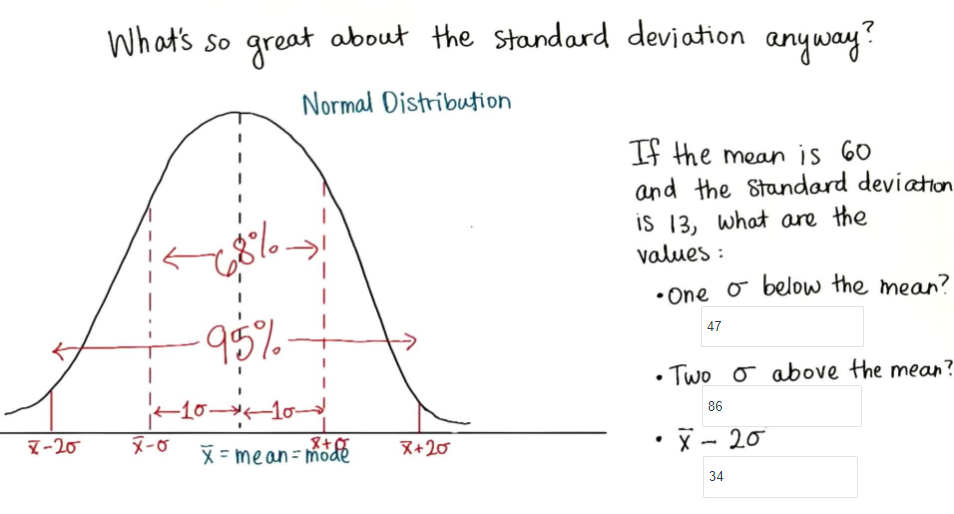 What's so great about the standard deviation anyway?
Normal Distribution
68%
95%
←1σ→←1σ→
x̄-2σ
x̄-σ
x̄=mean=mode
x̄+σ
x̄+2σ
If the mean is 60
and the standard deviation
is 13, what are the
values:
•One σ below the mean?
47
•Two σ above the mean?
86
• x̄ - 2σ
34